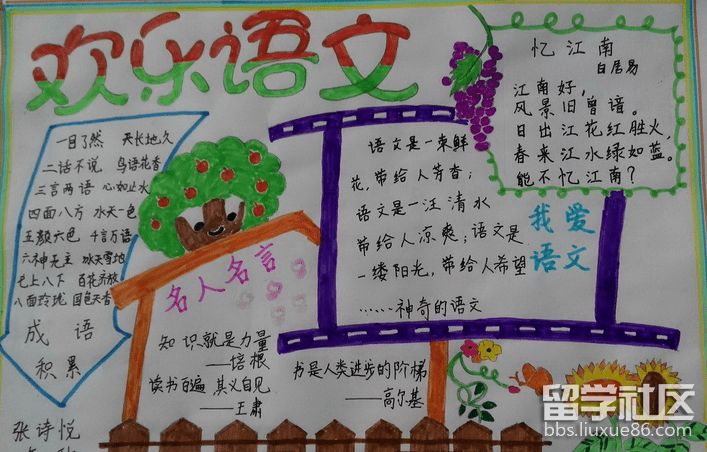 欢乐语文
一目了然 天长地久
二话不说 鸟语花香
三言两语 心如止水
四面八方 水天一色
五颜六色 千言万语
六神无主 冰天雪地
七上八下 百花齐放
八面玲珑 国色天香
成语
积累
张诗悦
名人名言
知识就是力量
——培根
读书百遍 其义自见
——王肃
书是人类进步的阶梯
——高尔基
语文是一束鲜
花,带给人芳香;
语文是一汪清水
带给人凉爽;语文是
一缕阳光,带给人希望
……神奇的语文
我爱
语文
忆江南
白居易
江南好,
风景旧曾谙。
日出江花红胜火,
春来江水绿如蓝。
能不忆江南?
留学社区
bbs.liuxue86.com